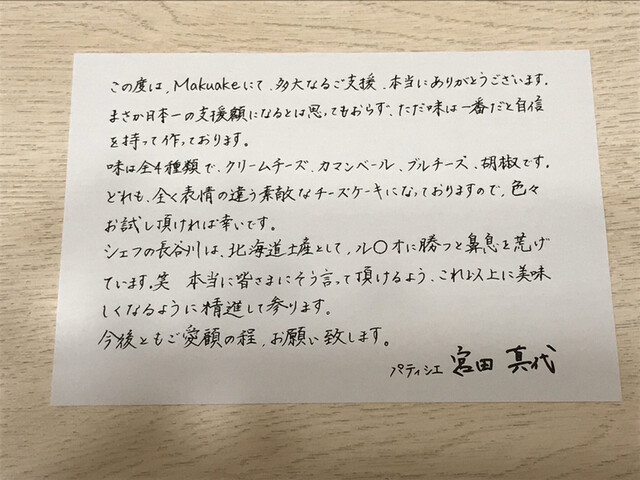 この度は、Makuakeにて、多大なるご支援、本当にありがとうございます。
まさか日本一の支援額になるとは思ってもおらず、ただ味は一番だと自信
を持って作っております。
味は全4種類で、クリームチーズ、カマンベール、ブルチーズ、胡椒です。
どれも、全く表情の違う素敵なチーズケーキになっておりますので、色々
お試し頂ければ幸いです。
シェフの長谷川は、北海道土産として、ル〇オに勝つと鼻息を荒げ
ています。笑　本当に皆さまにそう言って頂けるよう、これ以上に美味
しくなるように精進して参ります。
今後ともご愛顧の程、お願い致します。
パティシエ 宮田 真代